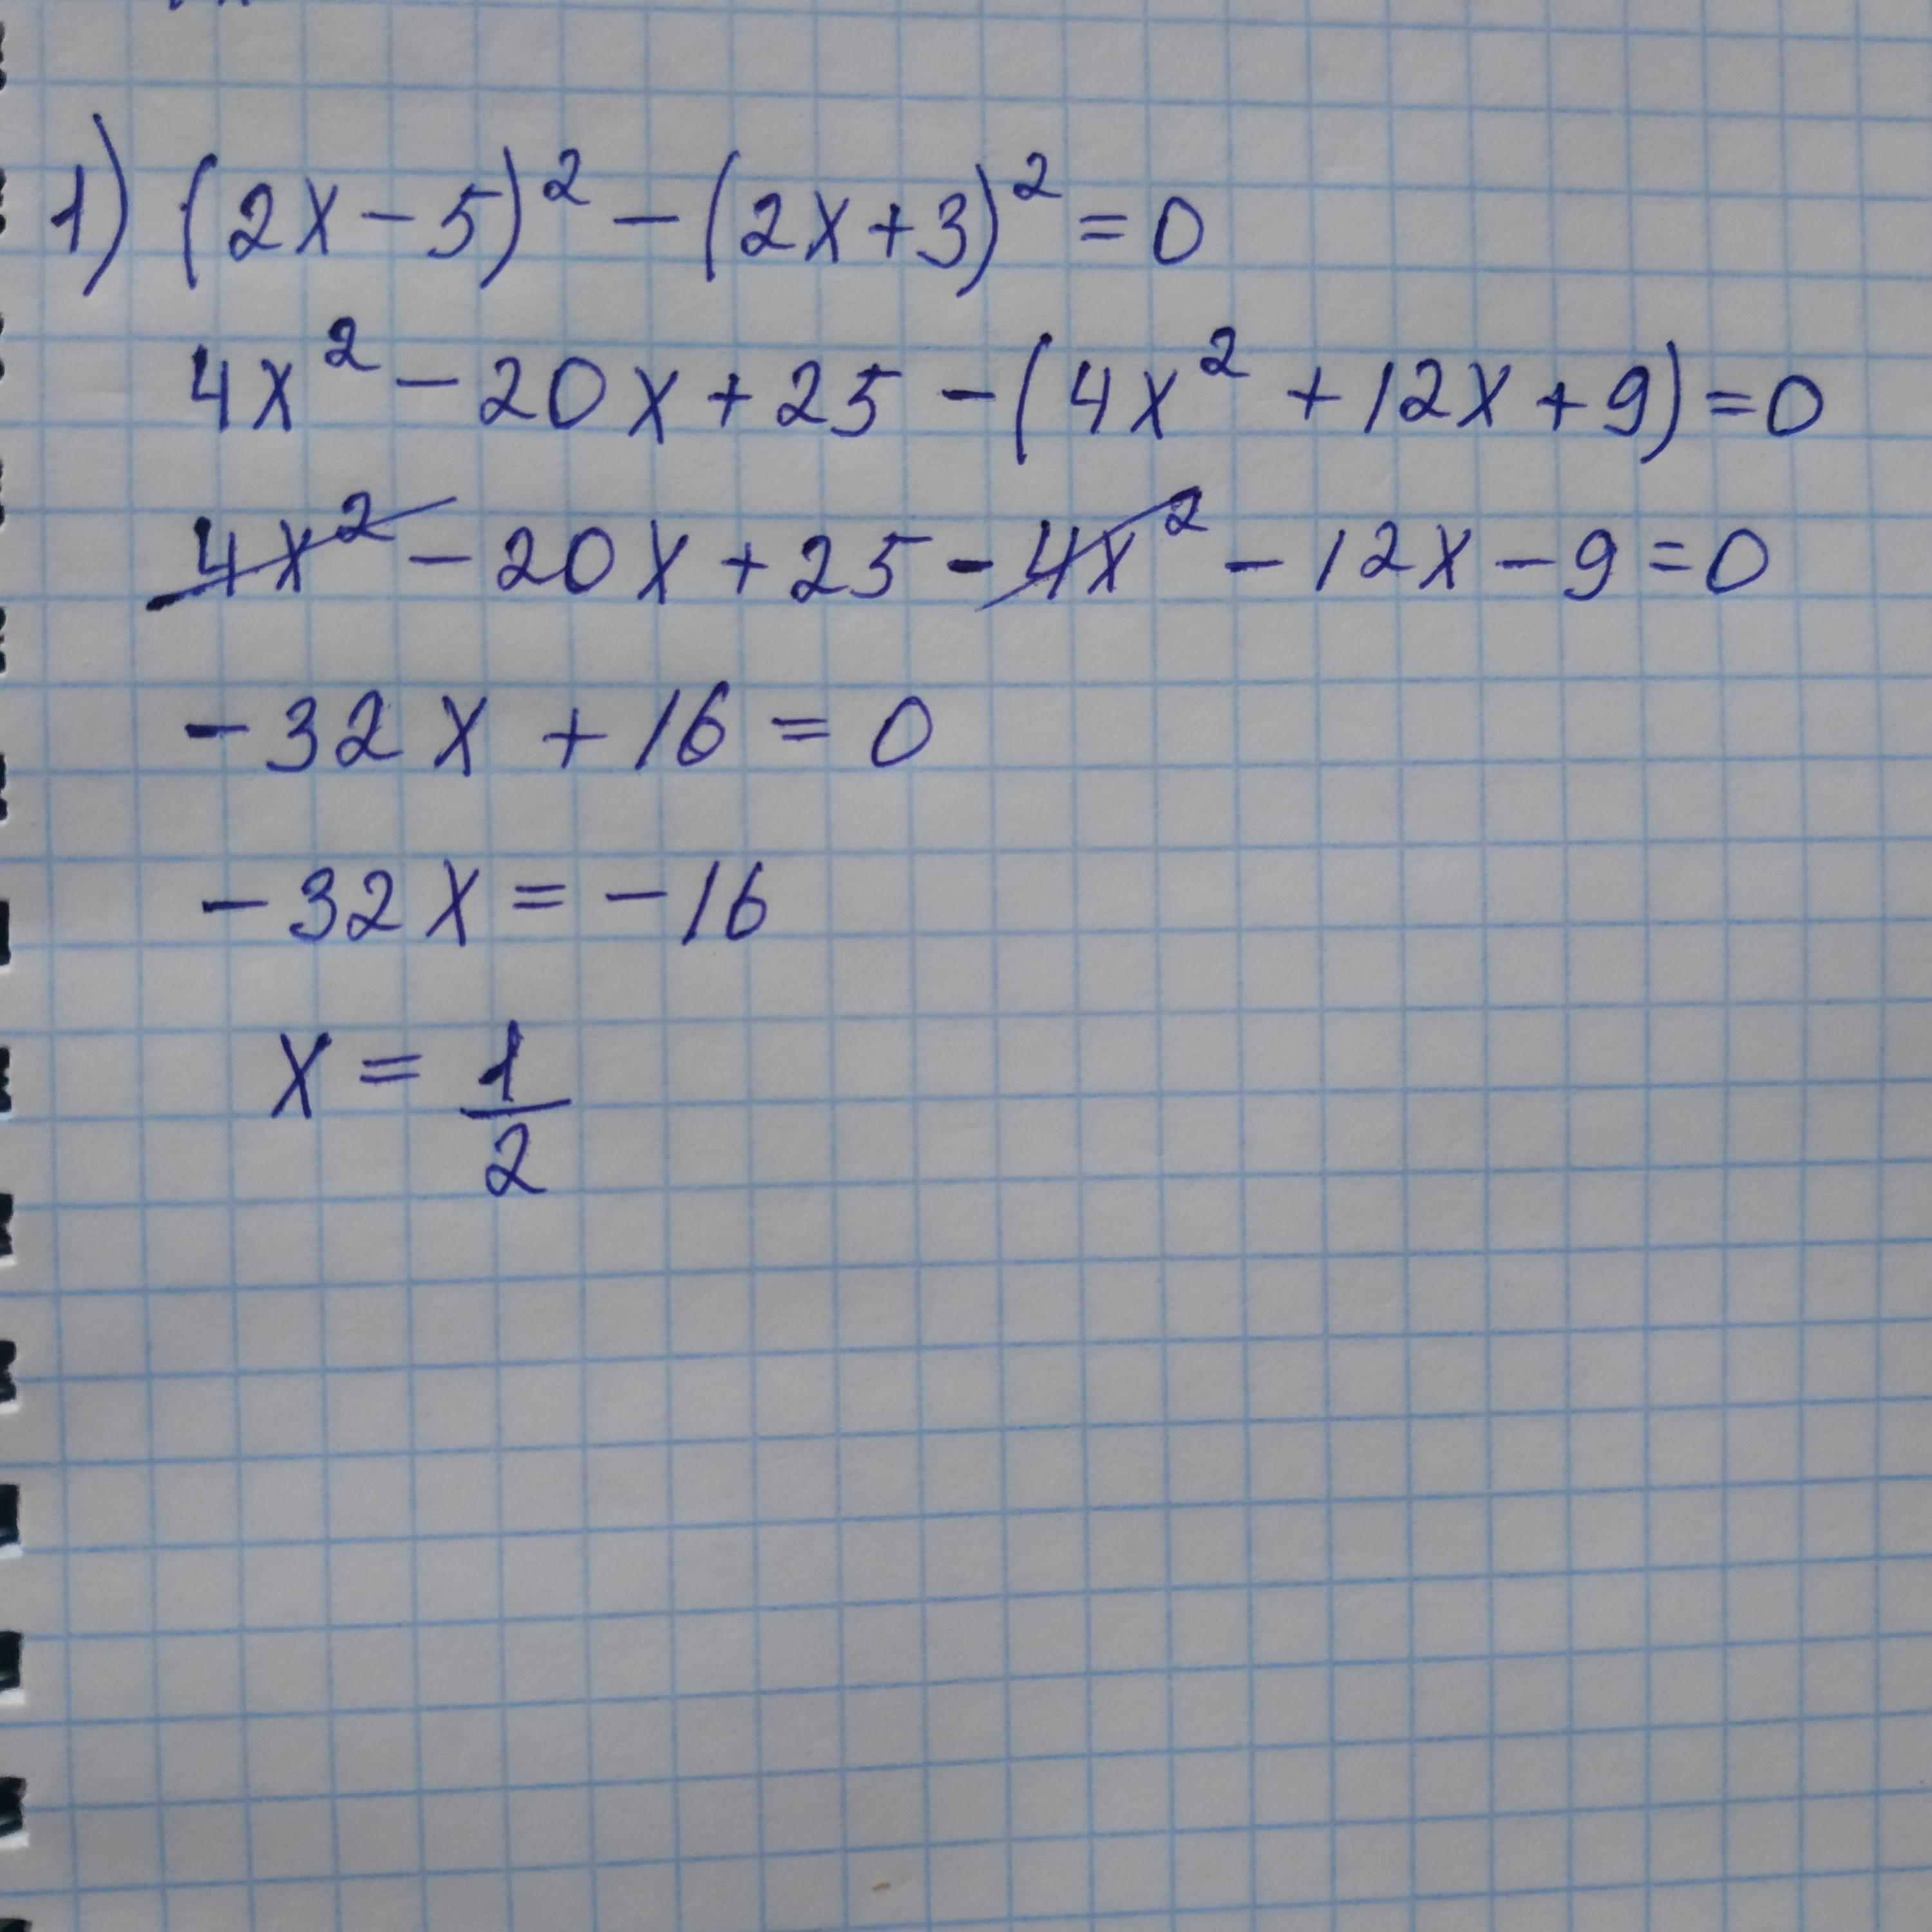 1) (2x-5)² - (2x+3)² = 0
4x² - 20x + 25 - (4x² + 12x + 9) = 0
4x² - 20x + 25 - 4x² - 12x - 9 = 0
-32x + 16 = 0
-32x = -16
x = 1/2